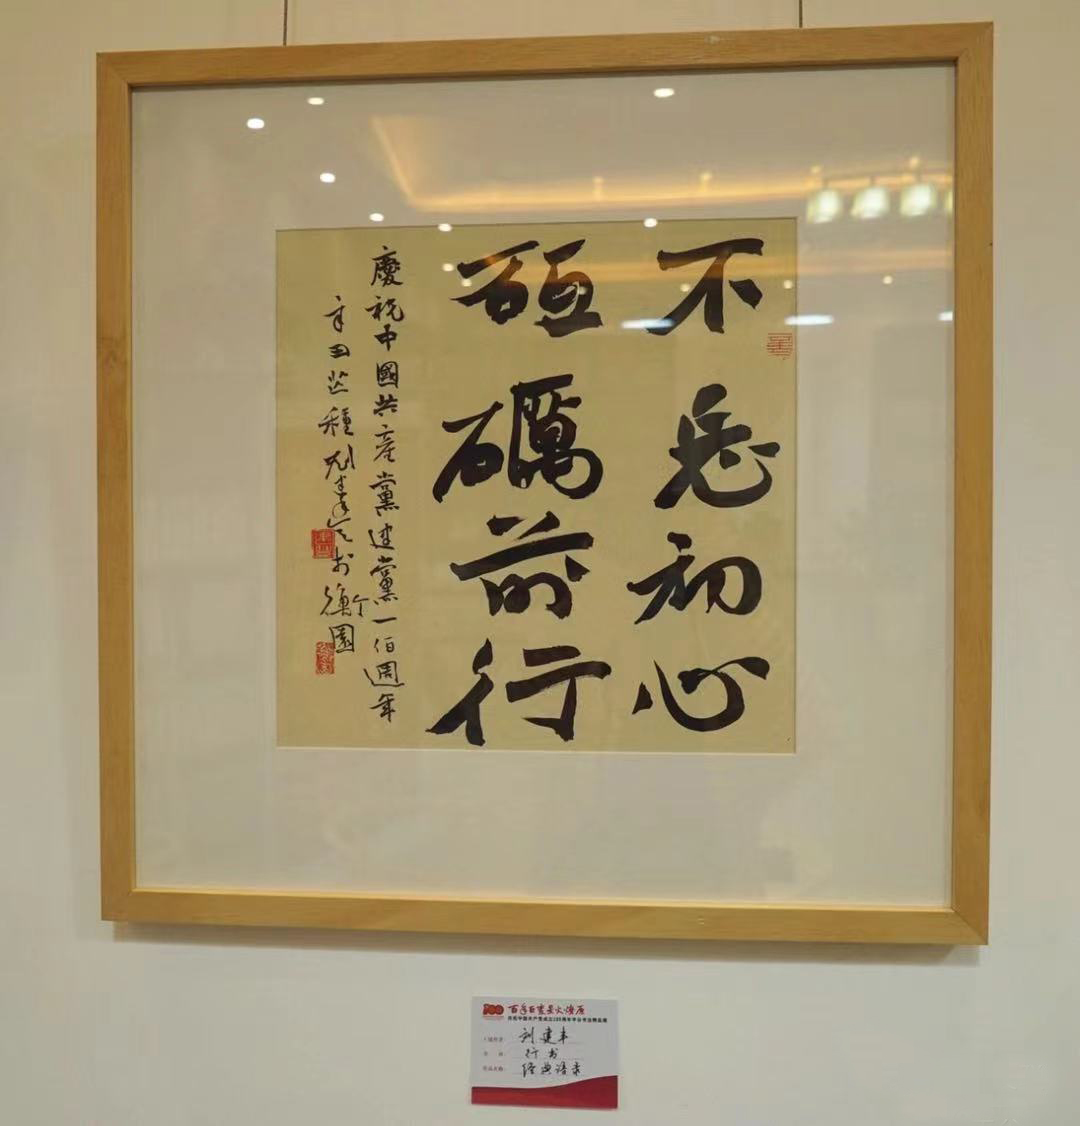 不忘初心
砥礪前行
慶祝中國共產黨建黨一佰週年
辛丑芒種劉建丰於衡園
100 百年巨变星火燎原
庆祝中国共产党成立100周年书法精品展
刘建丰
行书
作品名称：经典语录